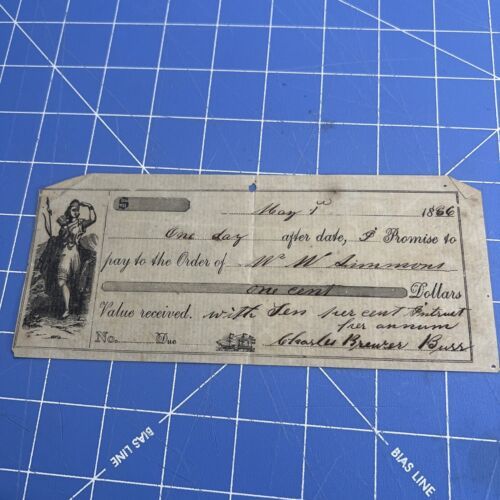 $
May 1st 1866
One day after date, I Promise to
pay to the Order of Wm W Simmons
One cent Dollars
Value received. with Ten per cent Intrest
per annum
No. Due Charles Brewer Burr
BIAS LINE
BIAS LINE